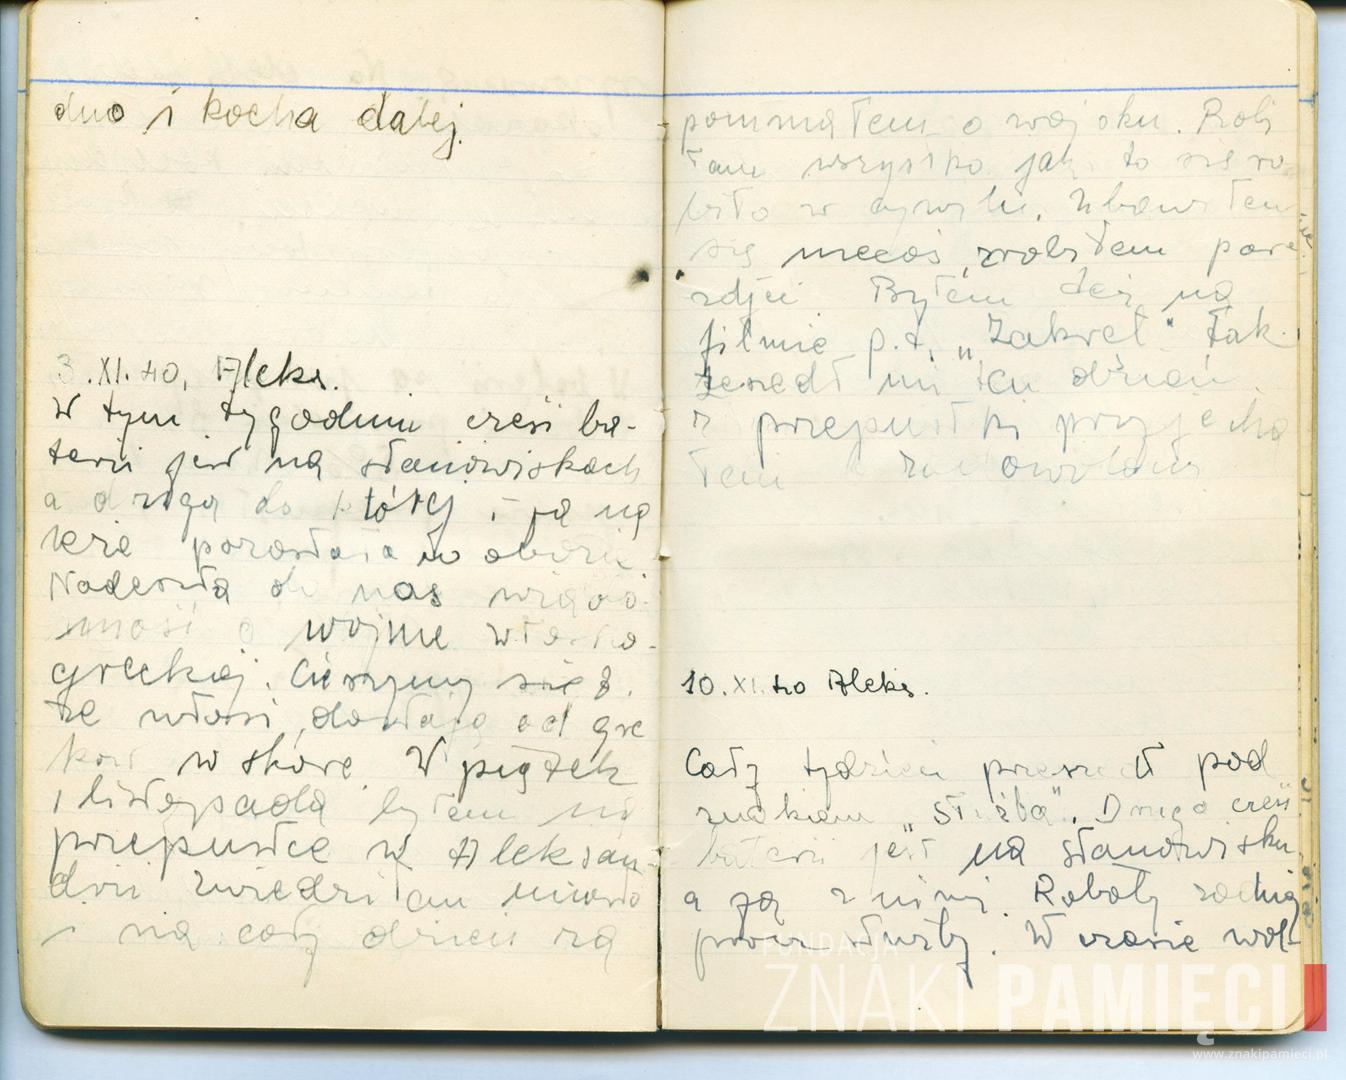 dno i kocha dalej.
3.XI.40. Aleks.
W tym tygodniu cześć ba-
terii jest na stanowiskach
a druga do której i ja na
leżę pozostała w obozie
Nadeszła do nas wiado-
mość o wojnie włosko-
greckiej. Cieszymy się
że włosi dostają od gre
ków w skórę. W piątek
1 listopada byłem na
przepustce w Aleksan-
drii zwiedziłam miasto
i na cały dzień za
pomniałem o wojsku. Robi
łam wszystko jak to się ro-
biło w cywilu. Ubawiłem
się nieco, zrobiłem parę
zdjęć. Byłem też na
filmie p.t. „Zakręt" tak
zeszedł mi ten dzień.
z przepustki przyjecha
łem zadowolony
10.XI.40 Aleks.
Cały tydzień przeszedł pod
znakiem „Służba". Druga cześć
baterii jest na stanowisku
a ja z nimi. Roboty żadnej
prócz służby. W czasie wol-
FUNDACJA
ZNAKI PAMIĘCI
www.znakipamieci.pl